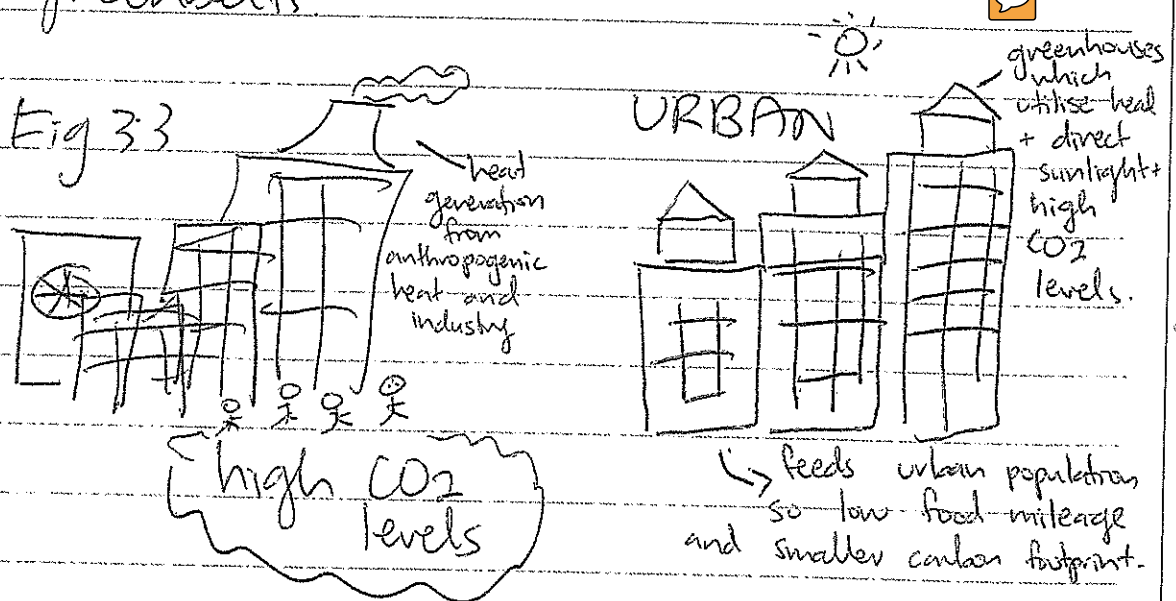 Fig 3.3
heat
generation
from
anthropogenic
heat and
industry
high CO2
levels
URBAN
greenhouses
which
utilise heat
+ direct
sunlight +
high
CO2
levels.
feeds urban population
so low food mileage
and smaller carbon footprint.